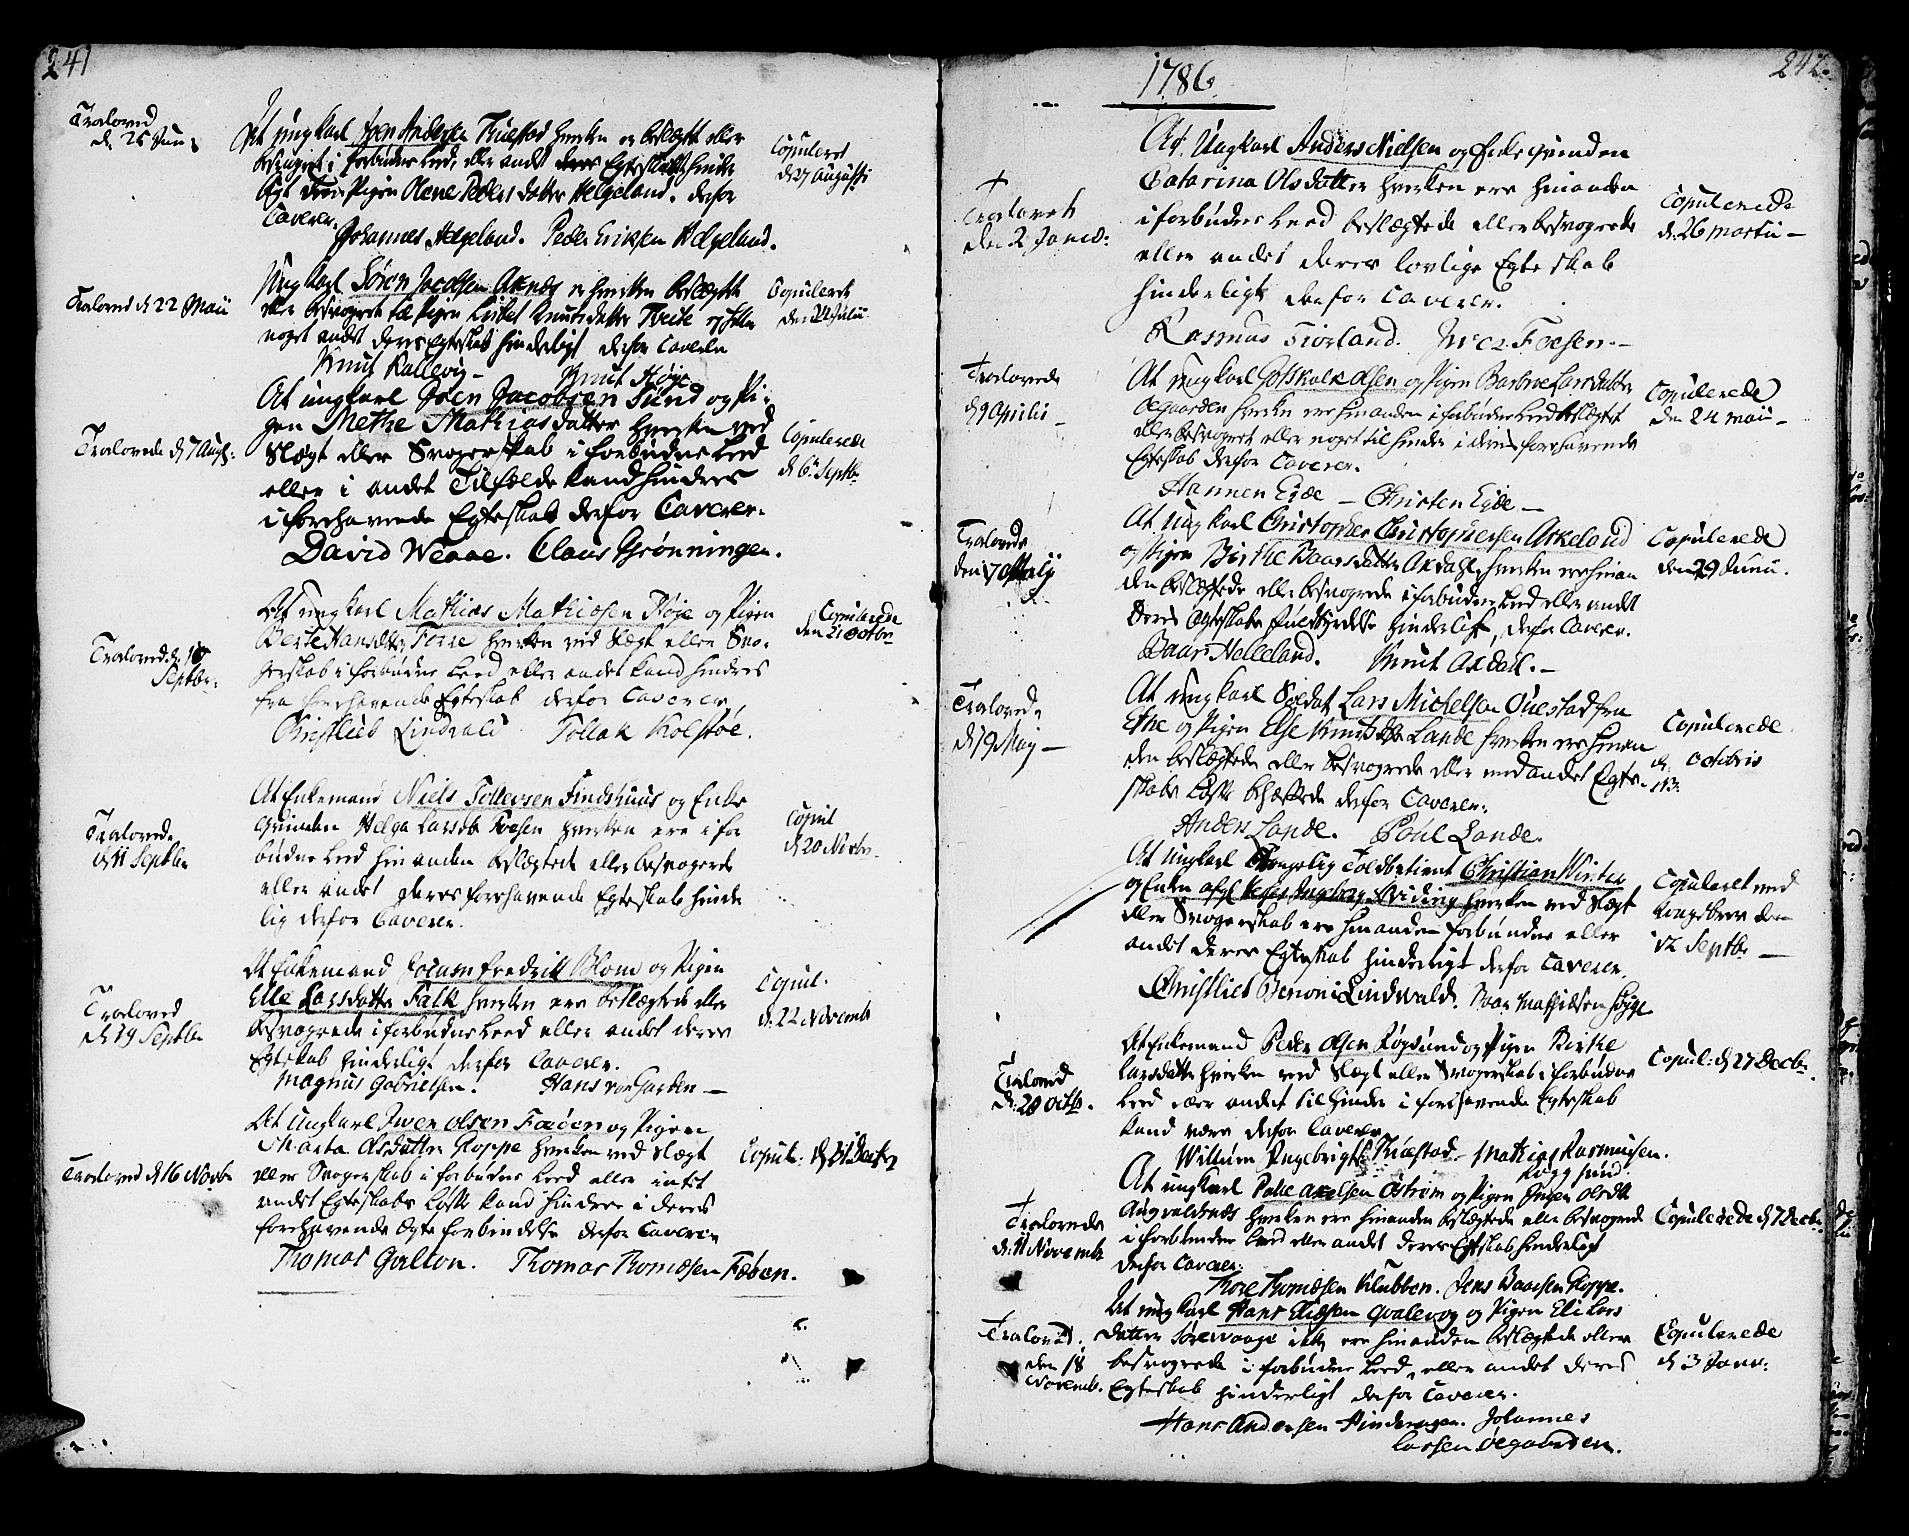 241
Troloved
d. 25 Junii
At ungkarl Joen Andersen Tuestad hverken er beslægtet eller
besvogret i forbudne Leed, eller andet deres Egteskab til hinder
Agt Pigen Olene Peders datter Helgeland. derfor
Caverer.
Johannes Helgeland. Peder Eriksen Helgeland.
Copuleret
d. 27 Augusti
Troloved d. 22 Maii
Ungkarl Søren Jacobsen Aknes er hverken beslægtet
eller besvogret til Pigen Lisbet Knuts datter Tveit og heller
noget andet deres Egteskab hinderligt derfor Caverer
Knut Rallevig - Knut Høje
Copuleret
Trolovede d. 7 Augs:
At ungkarl Joen Jacobsen Sund og Pi-
gen Methe Mathiasdatter hverken ved
Slægt eller Svogerskab i forbudne Leed
eller i andet Tilfælde kand hindres
i forehavende Egteskab derfor Caverer.
David Weaae. Claus Grønningen.
Copulerede
d. 6. Septbr
Troloved d. 18
Septbr.
At ungkarl Mathias Mathiasen Høje og Pigen
Berte Hansdatter Torre hverken ved Slægt eller Svo-
gerskab i forbudne Leed eller andet kand hindres
fra forehavende Egteskab derfor Caverer
Christlieb Lindvald Tollak Kolstøe.
Copulerede
den 21 Octobr
Trolovede
d. 11 Septbr
At Enkemand Niels Tollevsen Findshuus og Enke
Qvinden Helga Larsdtr Foesen hverken ere i for
budne Leed hinanden beslægtede eller besvogrede
eller andet deres forehavende Egteskab hinder
lig derfor Caverer.
Copul
d. 20 Novbr.
Troloved
d. 19 Septbr
At Enkemand Jochum Fredrik Blom og Pigen
Elle Larsdatter Falk hverken ere beslægtede eller
besvogrede i forbudne Leed eller andet deres
Egteskab hinderligt derfor Caverer.
Magnus Gabrielsen. Hans von Harten -
Copul.
d. 22 Novemb
Troloved d. 16 Novbr
At Ungkarl Iwer Olsen Faøen og Pigen
Marta Olsdatter Roppe hverken ved Slægt
eller Svogerskab i forbudne Leed eller intet
andet Egteskabs Løfte kand hindres i deres
forehavende Egte forbindelse derfor Caverer
Thomas Galton. Thomas Thomæsen Fæøen.
Copul: d. 31 Decbr
1786.
242.
Trolovede
den 2 Janv:
At Ungkarl Anders Nielsen og Enke Qvinden
Catarina Olsdatter hverken ere hinanden
i forbudne Leed beslægtede eller besvogrede
eller andet deres lovlige Egteskab
hinderligt derfor Caverer.
Rasmus Fiorland. Iwer Foesen. -
Copulerede
d. 26 Martii -
Trolovede
d. 9 Aprilis -
At ungkarl Gotskalk Olsen og Pigen Barbroe Larsdatter
Øegaarden hverken ere hinanden i forbudne Leed beslægtet
eller besvogret eller noget til hinder i deres forehavende
Egteskab derfor Caverer.
Hannen Eide - Christen Eide -
Copulerede
den 24 Maii -
Trolovede
At Ungkarl Christopher Christophersen Askeland
og Pigen Birthe Baarsdatter Axdall hverken ere hinan
den beslægtede eller besvogrede i forbudne Leed eller andet
deres Egteskabs fuldbyrdelse hinderligt, derfor Caverer.
Baar Helleland. Knut Axdall. -
Copulerede
den 29 Junii.
Trolovede
d. 19 Maij -
At ungkarl Soldat Lars Michelsen Øuestad fra
Etne og Pigen Else Knutsdtr Lande hverken ere hinan
den beslægtede eller besvogrede eller med andet Egte-
skabs Løfte behæftede derfor Caverer.
Anders Lande. Poul Lande.
Copulerede
d. 13 Octobris
At Ungkarl Kongelig Toldbetient Christian Winter
og Enken afgl. Ingeborg hverken ved Slægt
eller Svogerskab ere hinanden forbundne eller
andet deres Egteskab hinderligt derfor Caverer.
Christlieb Benoni Lindwald. Baar Mathiæsen Høyge
Copuleret ved
Kongebrev den
12 Septbr -
Troloved
d. 20 Octbr.
At Enkemand Peder Olsen Røgsund og Pigen Birthe
Larsdatter hverken ved Slægt eller Svogerskab i forbudne
Leed eller andet til hinder i forehavende Egteskab
kand være derfor Caverer
Willum Ingebrigts. Tuestad - Mathias Rasmusen.
Røggsund
Copul: d. 27 Decbr.
Trolovede
d. 11 Novembr
At ungkarl Palle Axelsen Østrim og Pigen Inger Olsdtr
Augvaldsnæs hverken ere hinanden beslægtede eller besvogrede
i forbudne Leed eller andet deres Egteskab hinderligt
derfor Caverer.
Tore Thomæsen Klubben. Jens Baarsen Roppe.
Copulerede d. 7 Decbr.
Troloved.
den 18
Novemb.
At ungkarl Hans Eliæsen Qvalevog og Pigen Eli Lars
datter Sørevaage ikke ere hinanden beslægtede eller
besvogrede i forbudne Leed, eller andet deres
Egteskab hinderligt derfor Caverer.
Hans Andersen Hinderagen. Johannes
Larsen Øegaarden.
Copulerede
d. 3 Janv.